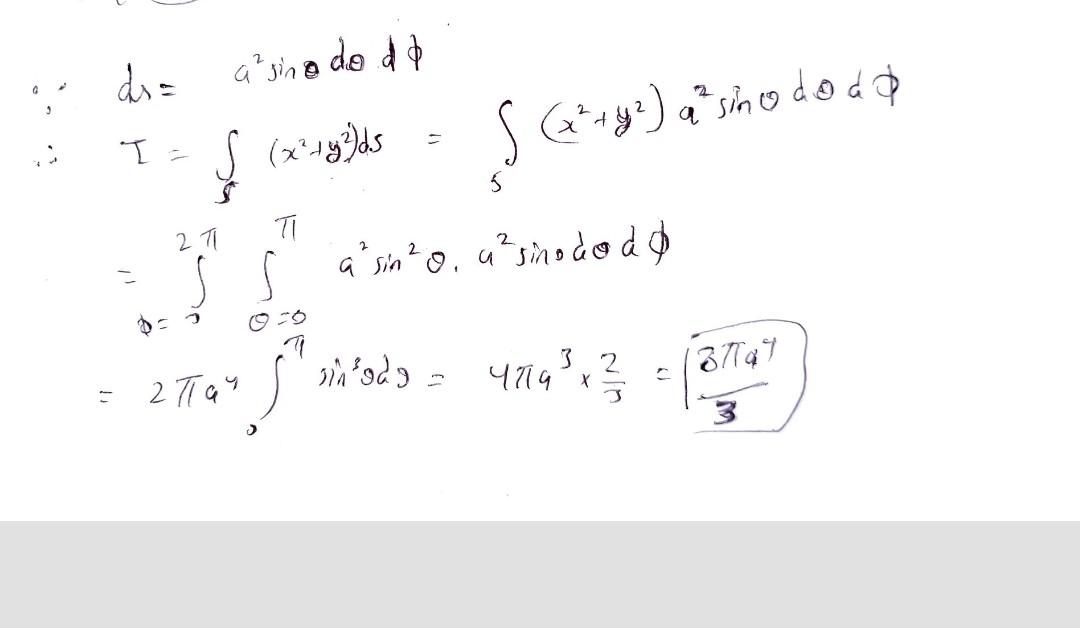 ∵ ds = a² sinθ dθ dϕ
∴ I = ∫_S (x²+y²)ds = ∫_S (x²+y²) a² sinθ dθ dϕ
= ∫_{ϕ=0}^{2π} ∫_{θ=0}^{π} a² sin²θ. a² sinθ dθ dϕ
= 2πa⁴ ∫_0^π sin³θdθ = 4πa³ × 2/3 = 8πa⁴/3